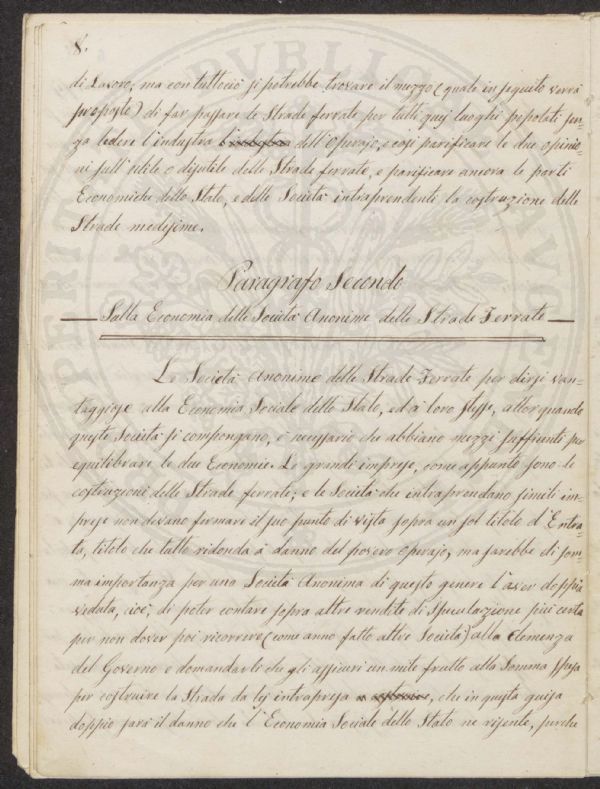 8.
di Lavoro; ma con tuttociò si potrebbe trovare il mezzo (quale in seguito verrà
proposto) di far passare le Strade ferrate per tutti quei luoghi popolati sen-
za ledere l'industra dell'Operajo, e così parificare le due opinio-
ni sull'utile o disutile delle Strade ferrate, e parificare ancora le parti
Economiche dello Stato, e delle Società intraprendenti la costruzione delle
Strade medesime.
Paragrafo Secondo
Sulla Economia delle Società Anonime delle Strade Ferrate
Le Società Anonime delle Strade Ferrate per dirsi van=
taggiose alla Economia Sociale dello Stato, ed à loro stesse, allorquando
queste Società si compongano, è necessario che abbiano mezzi sufficienti per
equilibrare le due Economie. Le grandi imprese, come appunto sono le
costruzioni delle Strade ferrate; e le Società che intraprendano simili im-
prese non devano fermare il suo punto di vista sopra un sol titolo d'Entra-
ta, titolo che tutto ridonda à danno del povero operajo, ma sarebbe di som-
ma importanza per una Società Anonima di questo genere l'aver doppia
veduta, cioè, di poter contare sopra altre rendite di Speculazione più certa
per non dover poi ricorrere (come anno fatto altre Società) alla Clemenza
del Governo e domandarli che gli assicuri un mite frutto alla Somma spesa
per costruire la Strada da lei intrapresa, che in questa guisa
doppio sarà il danno che l'Economia Sociale dello Stato ne risente, perche